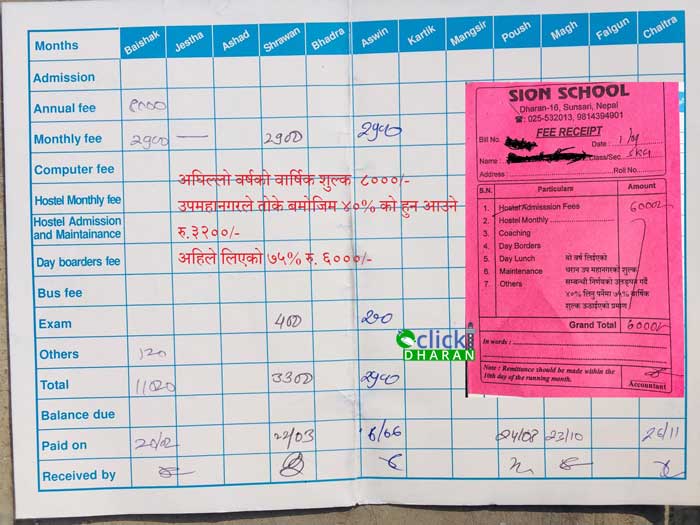 Months Baishak Jestha Ashad Shrawan Bhadra Aswin Kartik Mangsir Poush Magh Falgun Chaitra
Admission
Annual fee ८०००
Monthly fee 2900 2900 2900
Computer fee
Hostel Monthly fee
Hostel Admission
and Maintainance
Day boarders fee
Bus fee
Exam 400
Others 120
Total 11020 3300
Balance due
Paid on 22/03 24/08 23/10 26/11
Received by
अघिल्लो वर्षको वार्षिक शुल्क ८०००/-
उपमहानगरले तोके बमोजिम ४०% को हुन आउने
रु.३२००/-
अहिले लिएको ७५% रु. ६०००/-
click
DHARAN
SION SCHOOL
Dharan-16, Sunsari, Nepal
☎: 025-532013, 9814394901
FEE RECEIPT
Bill No. Date :
Name : Class/Sec.
Address : Roll No.
S.N. Particulars Amount
1. Hostel Admisssion Fees 6000/-
2. Hostel Monthly
3. Coaching
4. Day Borders
5. Day Lunch
6. Maintenance
7. Others
यो वर्ष लिईएको
धरान उप महानगरको शुल्क
सम्बन्धी निर्णयको उलङ्घन गर्दै
४०% लिनु पर्नेमा ७५% वार्षिक
शुल्क उठाईएको प्रमाण
Grand Total 6000/-
In words :
Note : Remittance should be made within the
10th day of the running month.
Accountant